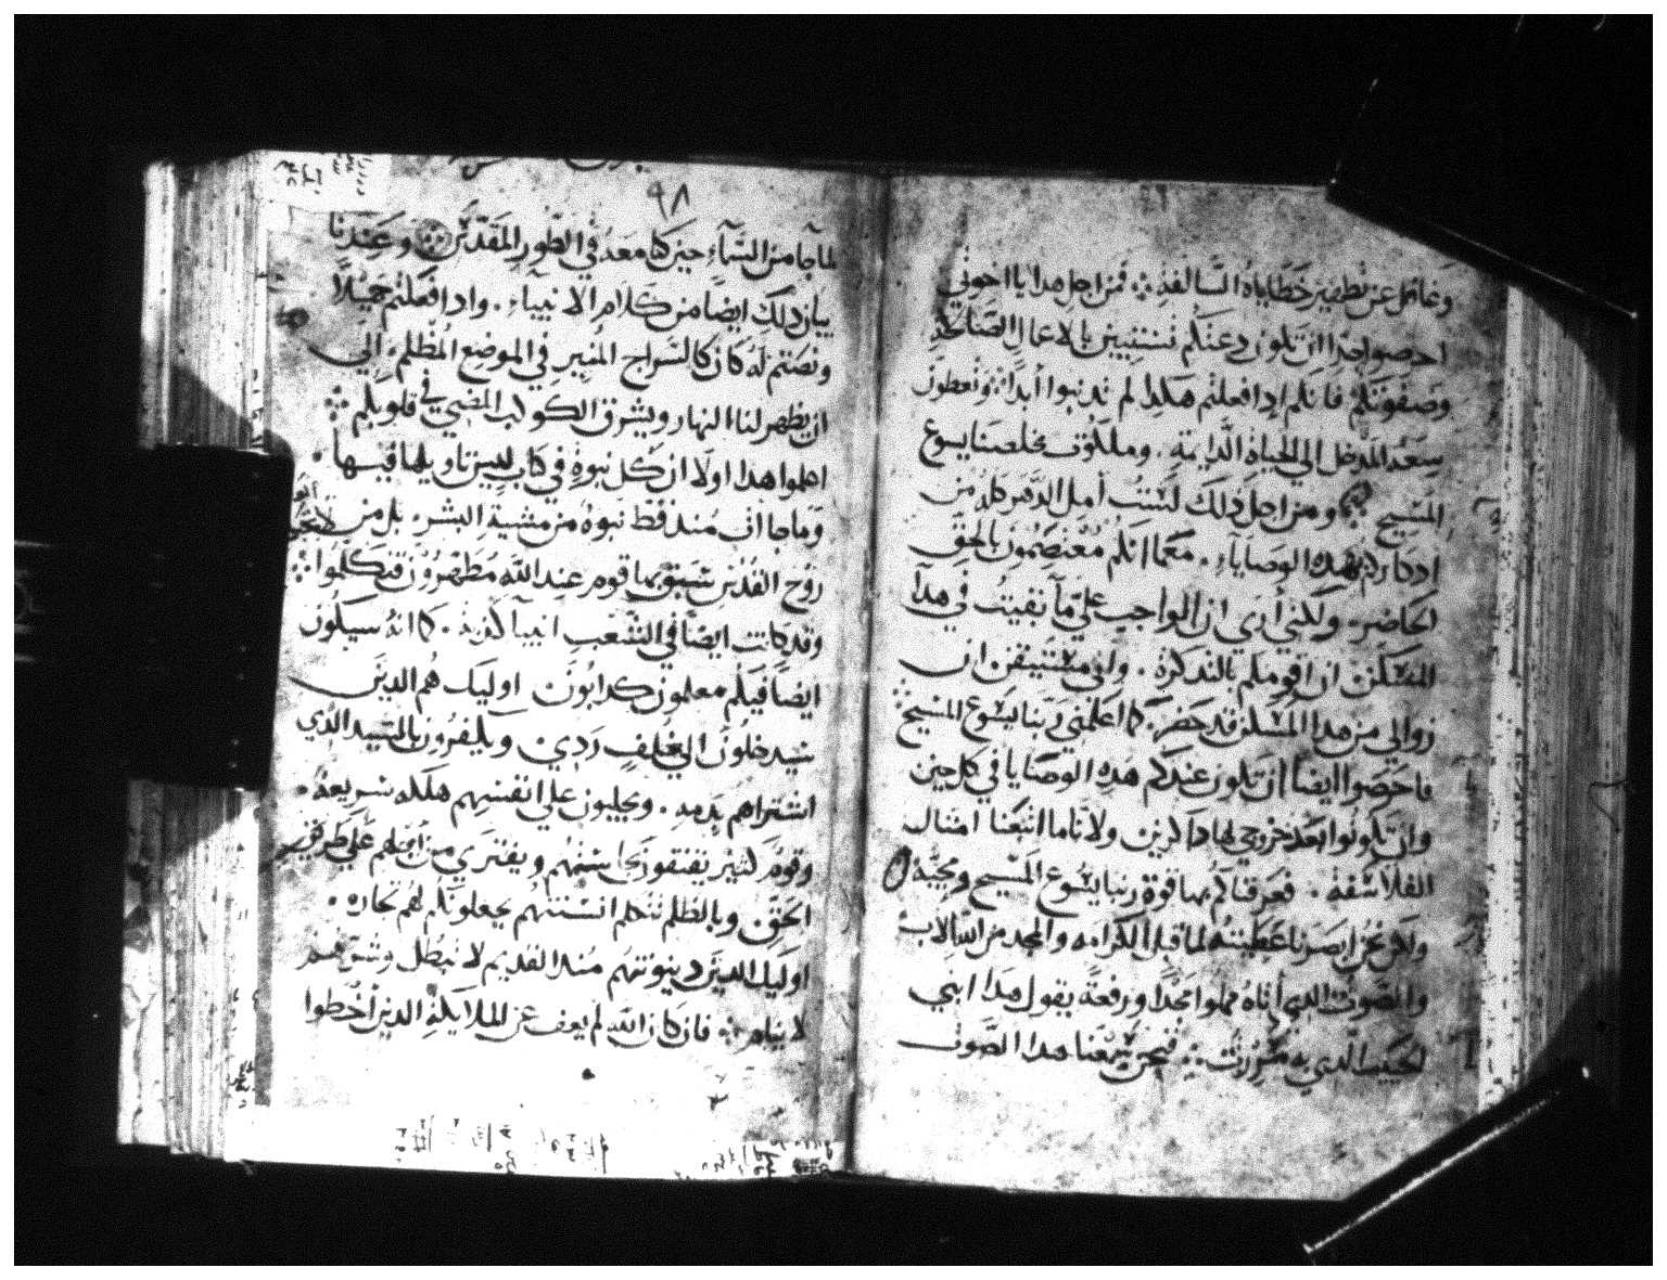 وغافل عن تطهير خطاياه السالفة ❖ فمن اجل هدا يا اخوتي
احرصوا جدا ان تكون دعتكم تستبين بالاعمال الصالحة
وصفوتكم فانكم ادا فعلتم هكدا لم تدنبوا أبدا وتعطون
سعة المدخل الي الحياة الدايمة . وملكوت مخلصنا يسوع
المسيح ❖ ومن اجل دلك لست أمل الدهر كله من
ادكاركم بهده الوصاياء . معما انكم معتصمون بالحق
الحاضر . ولكني أري ان الواجب علي مآ بقيت في هدآ
المسكن ان اقومكم بالتدكرة . واني مستيقن ان
زوالي من هدا المسكن قد حضر . كما اعلمني ربنا يسوع المسيح ❖
فاحرصوا ايضا أن تكون عندكم هده الوصايا في كل حين
وان تكونوا بعد خروجي لها داكرين ولاناما اتبعنا امتال
الفلاسفة . فعرفناكم بها قوة ربنا يسوع المسيح ومجيه
ولكن نحن ابصرنا عظمته لما قبل الكرامه والمجد من الله الاب
والصوت الدي أتاه مملوا مجدا ورفعة يقول هدا ابني
الحبيب الدي به سررت ❖ فنحن سمعنا هدا الصوت
٩٨
لما جا من السمآء حين كنا معه في الطور المقدس ❖ وعندنا
بيان دلك ايضا من كلام الانبياء . وادا فعلتم جميلا
ونصتم له كان كالسراج المنير في الموضع المظلم الي
ان يظهر لنا النهار ويشرق الكوكب المضي في قلوبكم ❖
اعلموا هدا اولا ان كل نبوة في كتاب ليس تاويلها فيها .
وما جاات مند قط نبوة من مشية البشر . بل من
روح القدس سبق بها قوم عند الله مطهرون فتكلموا ❖
وقد كانت ايضا في الشعب انبيآ كدبة . كما انه سيكون
ايضا فيكم معلمون كدابون اوليك هم الدين
سيدخلون الي خلف ردي ويكفرون بالسيد الدي
اشتراهم بدمه . ويجلبون علي انفسهم هلكه سريعة .
وقوم كثير يقتفون نجاستهم ويفتري من اجلهم علي طريق
الحق وبالظلم تتكلم السنتهم يجعلونكم لهم تجاره .
اوليك الدين دينونتهم مند القديم لا تبطل وشرهم
لا ينام ❖ فان كان الله لم يعف عن الملايكة الدين أخطوا